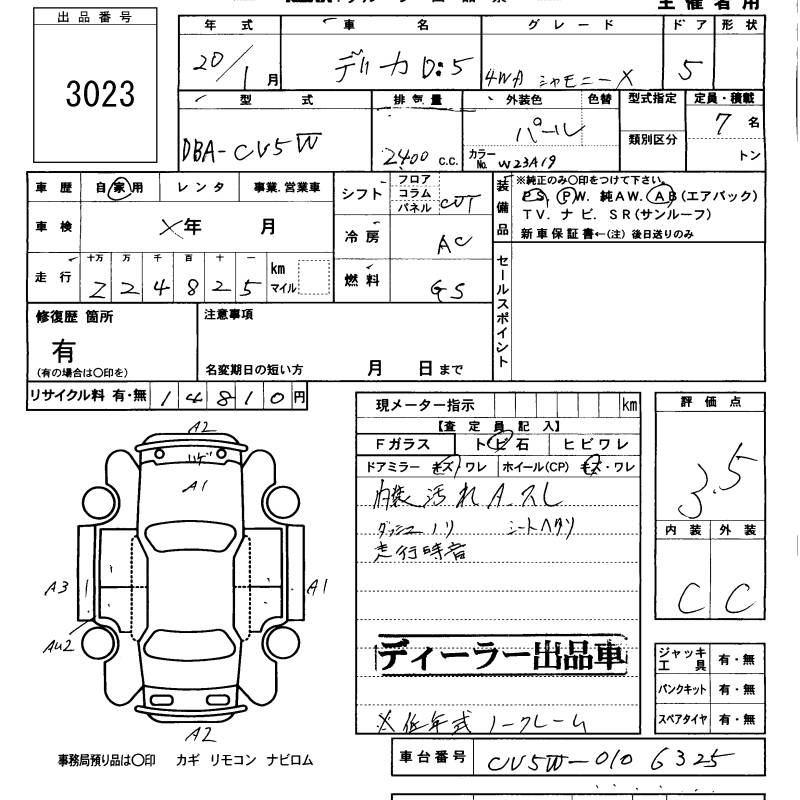 主催者用
出品番号
3023
年式 車名 グレード ドア 形状
20/1月 デリカD:5 4WD シャモニーX 5
型式 排気量 外装色 色替 型式指定 定員・積載
DBA-CV5W 2400 c.c. パール 7名
カラーNo. W23A19 類別区分 トン
車歴 自家用 レンタ 事業.営業車
車検 X年 月
走行 十万 万 千 百 十 一 km マイル
2 2 4 8 2 5
シフト フロア コラム パネル CVT
冷房 AC
燃料 GS
装備品
※純正のみ○印をつけて下さい。
P.S. P.W. 純A.W. A.B(エアバック)
T.V. ナビ. S.R(サンルーフ)
新車保証書←(注)後日送りのみ
セールスポイント
修復歴 箇所
有
(有の場合は○印を)
注意事項
名変期日の短い方 月 日まで
リサイクル料 有・無 1 4 8 1 0 円
現メーター指示 km
【査定員記入】
Fガラス トビ石 ヒビワレ
ドアミラー キズ・ワレ ホイール(CP) キズ・ワレ
内装汚れ A.スレ
ダッシュノリ シートヘタリ
走行時音
ディーラー出品車
※低年式ノークレーム
評価点
3.5
内装 外装
C C
ジャッキ工具 有・無
パンクキット 有・無
スペアタイヤ 有・無
A2
ハゲ
A1
A3
A1
AU2
A2
事務局預り品は○印 カギ リモコン ナビロム
車台番号 CV5W-0106325